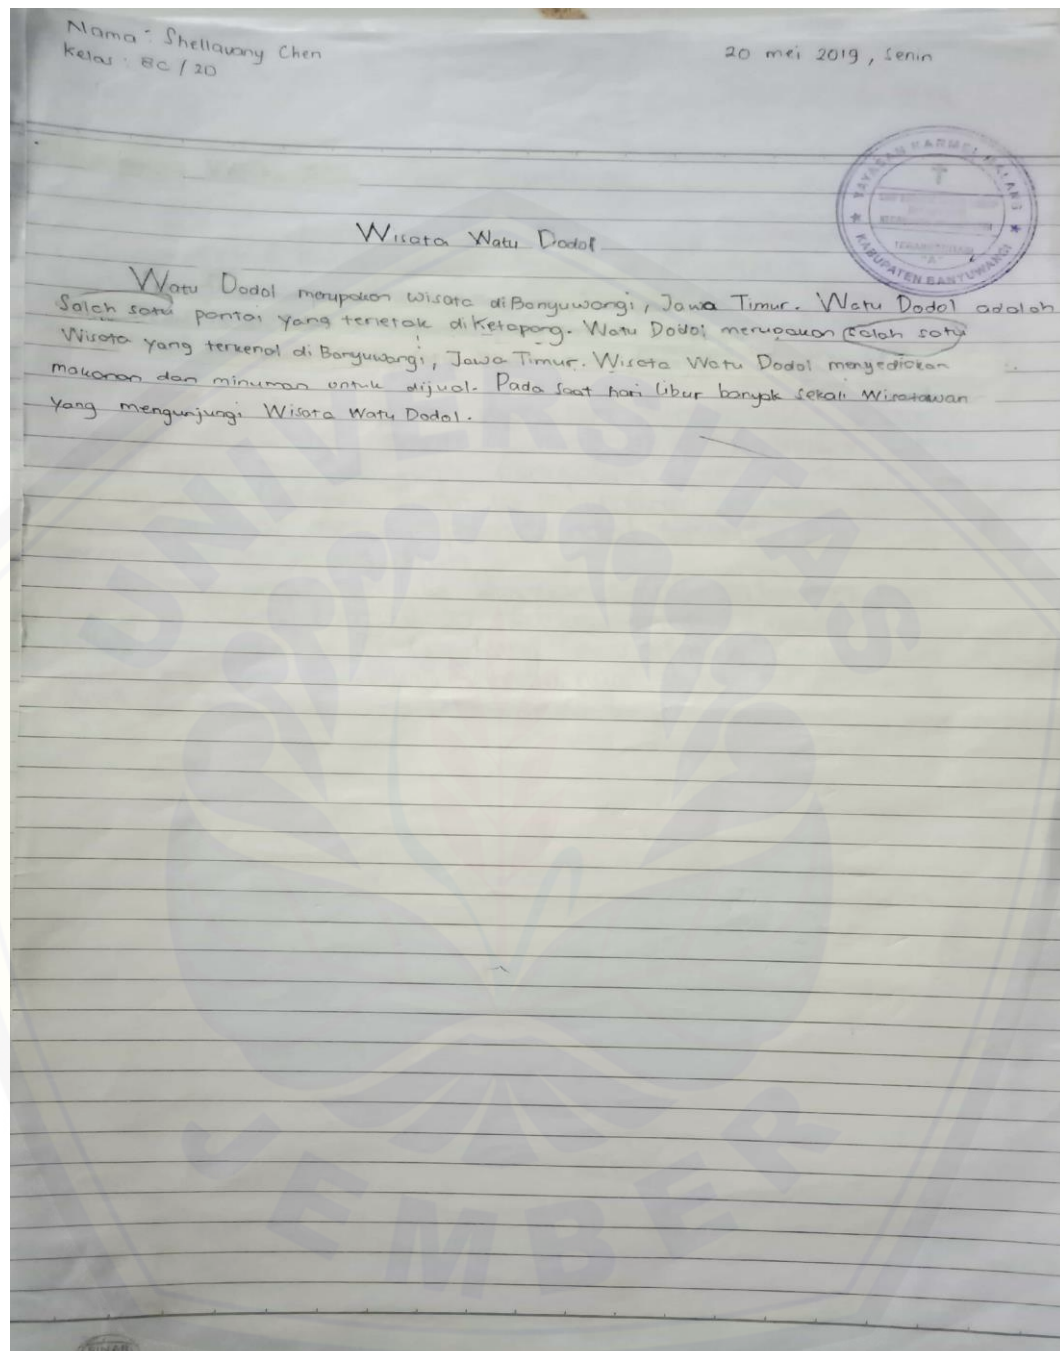 Nama : Shellavany Chen
Kelas : 8C / 20
20 mei 2019, Senin
YAYASAN KARMEL MALANG
KABUPATEN BANYUWANGI
"A"
Wisata Watu Dodol
Watu Dodol merupakan wisata di Banyuwangi, Jawa Timur. Watu Dodol adalah
Salah satu pantai yang terletak di Ketapang. Watu Dodol merupakan salah satu
Wisata yang terkenal di Banyuwangi, Jawa Timur. Wisata Watu Dodol menyediakan
makanan dan minuman untuk dijual. Pada saat hari libur banyak sekali Wisatawan
Yang mengunjungi Wisata Watu Dodol.
UNIVERSITAS
JEMBER